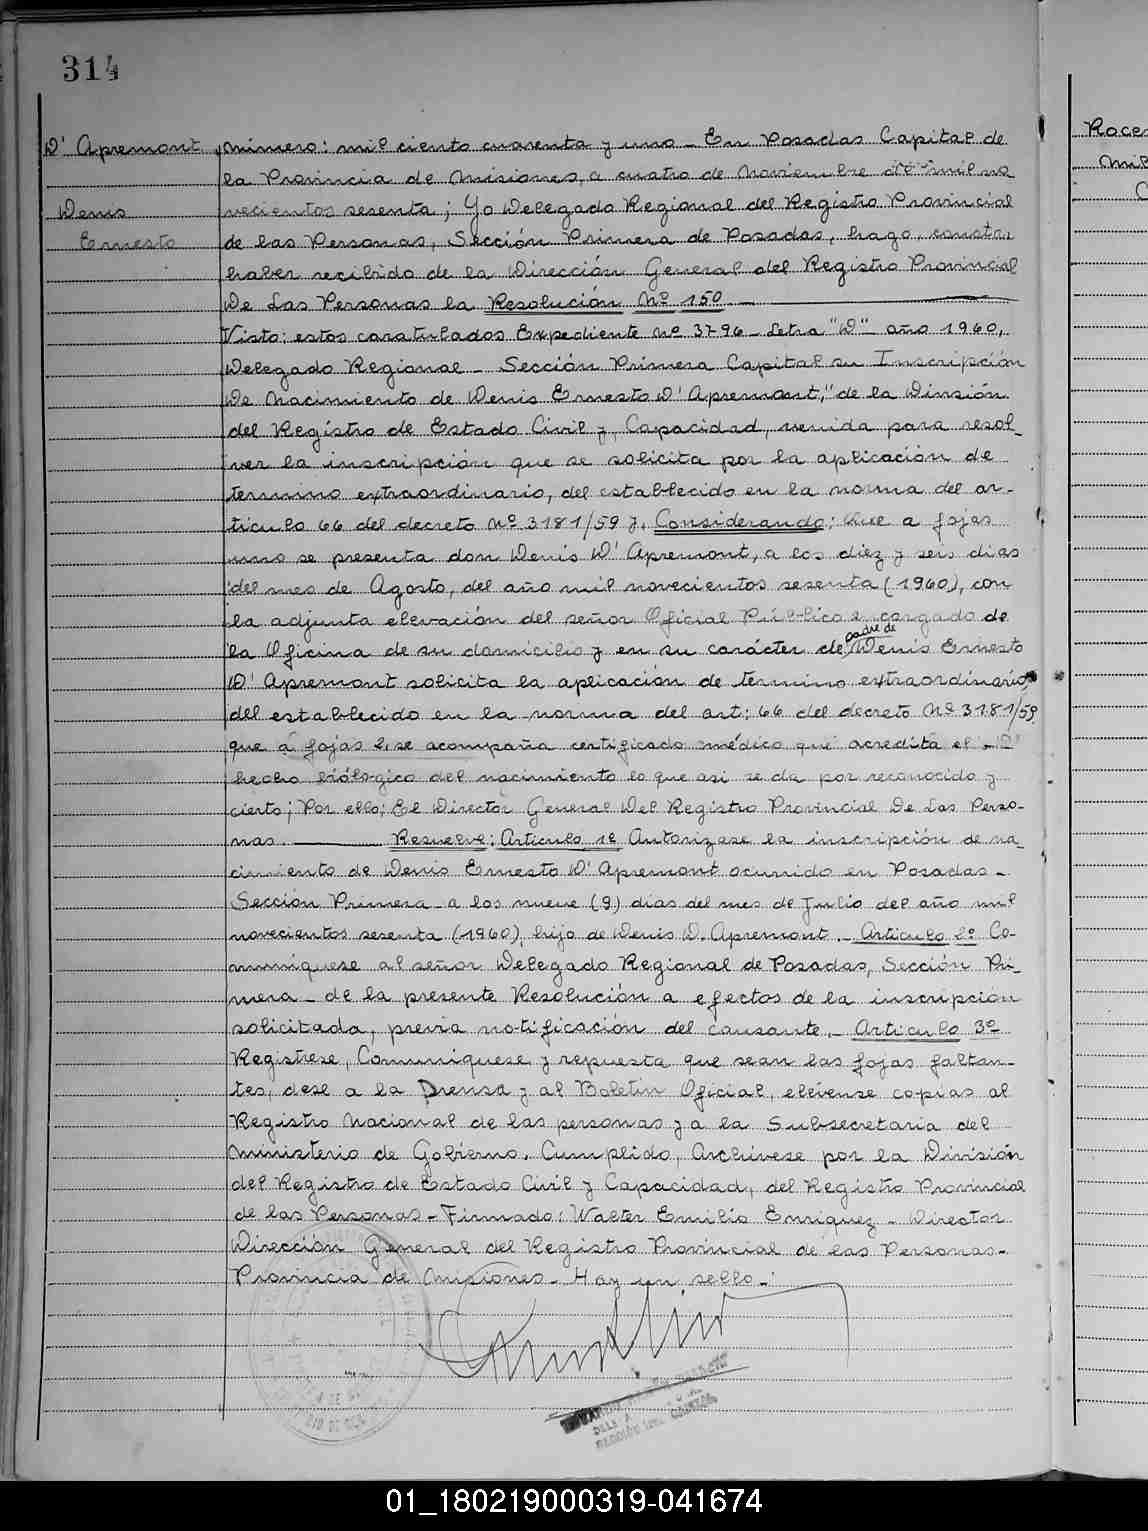 314
D' Apremont
Denis
Ernesto
número: mil ciento cuarenta y uno - En Posadas Capital de
la Provincia de Misiones, a cuatro de Noviembre de mil no
vecientos sesenta; Yo Delegado Regional del Registro Provincial
de las Personas, Sección Primera de Posadas, hago, constar
haber recibido de la Dirección General del Registro Provincial
De Las Personas la Resolución Nº 150.
Visto: estos caratulados Expediente Nº 3796 - Letra "D" - año 1960,
Delegado Regional - Sección Primera Capital su Inscripción
De Nacimiento de Denis Ernesto D' Apremont," de la División
del Registro de Estado Civil y, Capacidad, venida para resol-
ver la inscripción que se solicita por la aplicación de
termino extraordinario, del establecido en la norma del ar-
ticulo 66 del decreto Nº 3181/59 y, Considerando: Que a fojas
uno se presenta don Denis D' Apremont, a los diez y seis dias
del mes de Agosto, del año mil novecientos sesenta (1960), con
la adjunta elevación del señor Oficial Público encargado de
la Oficina de su domicilio y en su carácter de padre de Denis Ernesto
D' Apremont solicita la aplicación de termino extraordinario,
del establecido en la norma del art: 66 del decreto Nº 3181/59.
que a fojas 2, se acompaña certificado médico que acredita el
hecho biólogico del nacimiento lo que asi se da por reconocido y
cierto; Por ello; El Director General Del Registro Provincial De Las Perso-
nas. Resuelve: Articulo 1º Autorizase la inscripción de na-
cimiento de Denis Ernesto D' Apremont ocurrido en Posadas -
Sección Primera - a los nueve (9) dias del mes de Julio del año mil
novecientos sesenta (1960), hijo de Denis D. Apremont. - Articulo 2º Co-
muníquese al señor Delegado Regional de Posadas, Sección Pri-
mera - de la presente Resolución a efectos de la inscripción
solicitada, previa notificación del causante. - Articulo 3º
Registrese, Comuníquese y repuesta que sean las fojas faltan-
tes, dese a la Prensa y al Boletin Oficial, elévense copias al
Registro Nacional de las personas y a la Subsecretaria del
Ministerio de Gobierno. Cumplido, Archivese por la División
del Registro de Estado Civil y Capacidad, del Registro Provincial
de las Personas - Firmado: Walter Emilio Enriquez - Director
Dirección General del Registro Provincial de las Personas -
Provincia de Misiones - Hay un sello -
Roce
Mil
01_180219000319-041674